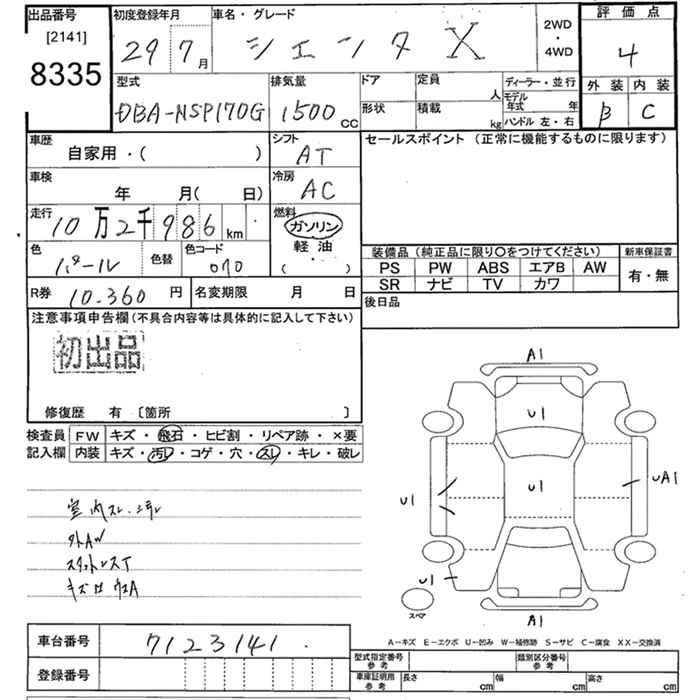 出品番号
[2141]
8335
初度登録年月
29 7月
車名・グレード
シエンタ X
2WD
・
4WD
評価点
4
外装 内装
B C
型式
DBA-NSP170G
排気量
1500 cc
ドア
定員
人
形状
積載
kg
ディーラー・並行
モデル
年式 年
ハンドル 左・右
車歴
自家用・( )
シフト
AT
セールスポイント (正常に機能するものに限ります)
車検
年 月( 日)
冷房
AC
走行
10万2千986km
燃料
ガソリン
軽油
( )
色
パール
色替
色コード
070
装備品(純正品に限り〇をつけてください)
新車保証書
PS PW ABS エアB AW
有・無
SR ナビ TV カワ
R券
10.360 円
名変期限 月 日
後日品
注意事項申告欄(不具合内容等は具体的に記入して下さい)
初出品
修復歴 有 〔箇所 〕
検査員 FW キズ・飛石・ヒビ割・リペア跡・×要
記入欄 内装 キズ・汚レ・コゲ・穴・スレ・キレ・破レ
室内スレ
外AW
キズ
A1
U1
U1
U1
UA1
U1
スペア
A1
A-キズ E-エクボ U-凹み W-補修跡 S-サビ C-腐食 XX-交換済
車台番号
7123141
登録番号
型式指定番号
参考
類別区分番号
参考
車庫証明用
参考
長さ cm 幅 cm 高さ cm